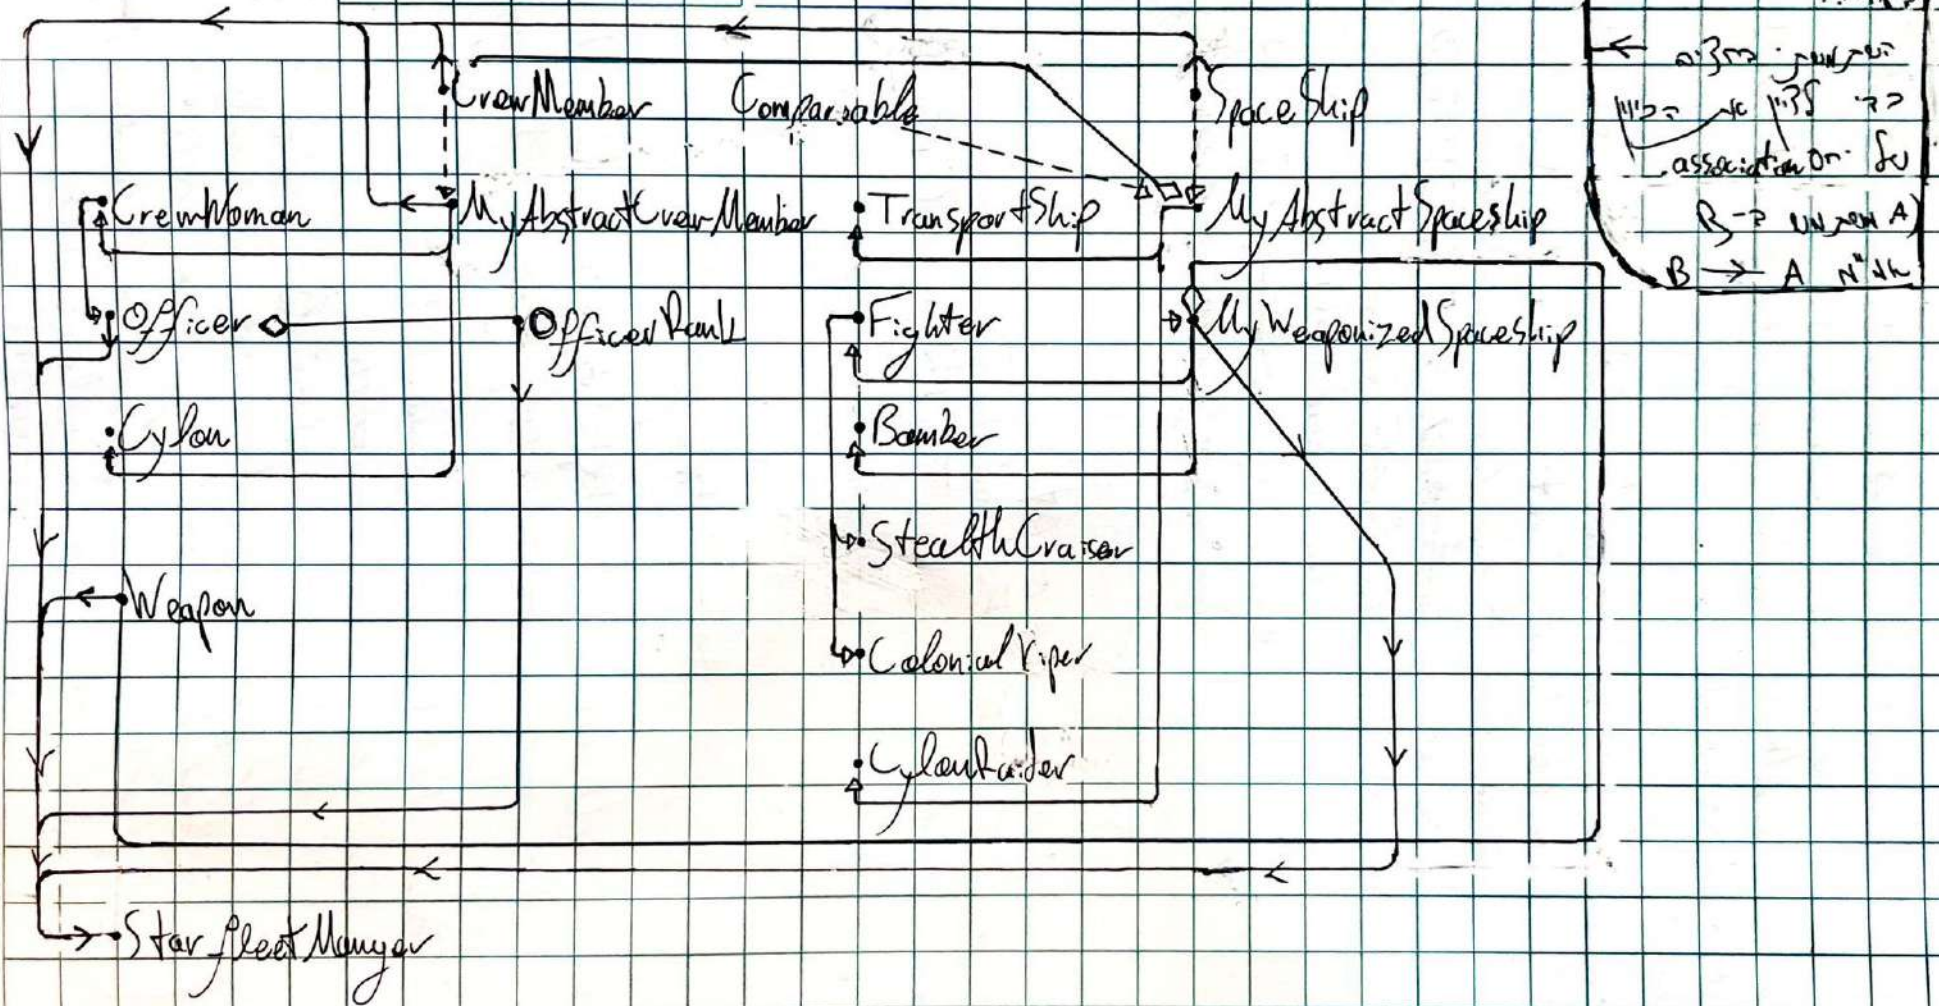 CrewMember
Comparable
SpaceShip
CrewWoman
MyAbstractCrewMember
TransportShip
MyAbstractSpaceship
Officer
OfficerRank
Fighter
MyWeaponizedSpaceship
Cylon
Bomber
StealthCruiser
Weapon
ColonialViper
CylonRaider
StarfleetManager
השתמשתי בחצים
כדי לציין את הכיוון
של ה-association.
A) משתמש ב-B
B → A